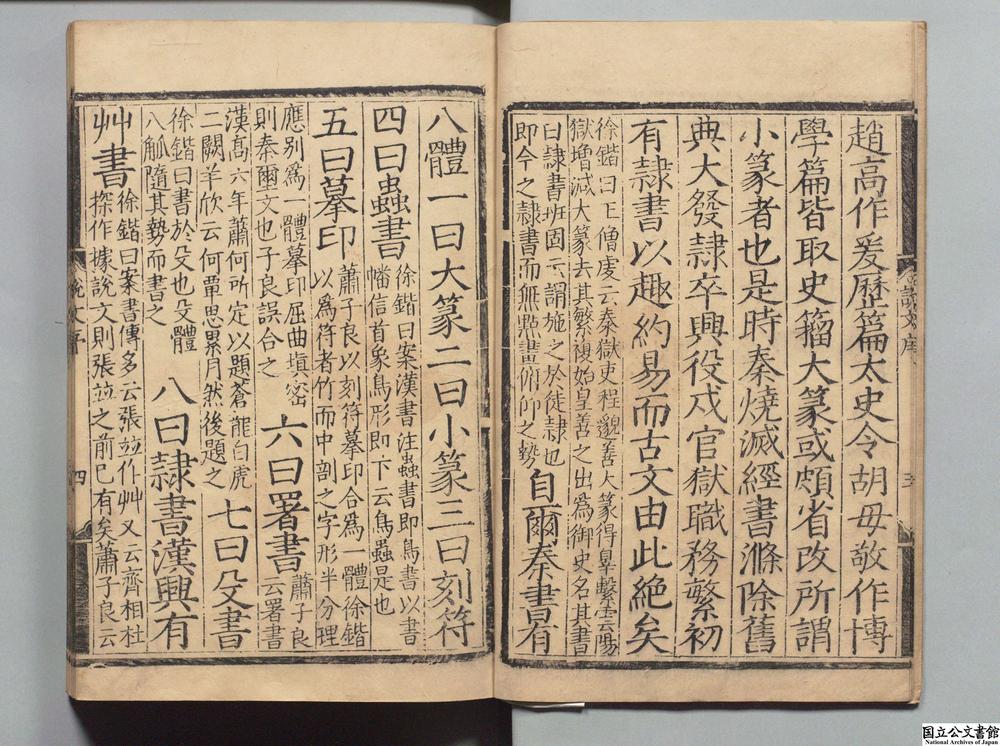 趙高作爰歷篇太史令胡毋敬作博
學篇皆取史籀大篆或頗省改所謂
小篆者也是時秦燒滅經書滌除舊
典大發隷卒興役戍官獄職務繁初
有隷書以趣約易而古文由此絶矣
徐鍇曰王僧虔云秦獄吏程邈善大篆得辠繫雲陽
獄增減大篆去其繁複始皇善之出爲御史名其書
曰隷書班固云謂施之於徒隷也
即今之隷書而無點畫俯仰之勢
自爾秦書有
說文序
三
八體一曰大篆二曰小篆三曰刻符
四曰蟲書
徐鍇曰案漢書注蟲書即鳥書以書
幡信首象鳥形即下云鳥蟲是也
五曰摹印
蕭子良以刻符摹印合爲一體徐鍇
以爲符者竹而中剖之字形半分理
應別爲一體摹印屈曲填密
則秦璽文也子良誤合之
六曰署書
蕭子良
云署書
漢高六年蕭何所定以題蒼龍白虎
二闕羊欣云何覃思累月然後題之
七曰殳書
徐鍇曰書於殳也殳體
八觚隨其勢而書之
八曰隷書漢興有
艸書
徐鍇曰案書傳多云張並作艸又云齊相杜
探作據說文則張並之前已有矣蕭子良云
說文序
四
国立公文書館
National Archives of Japan